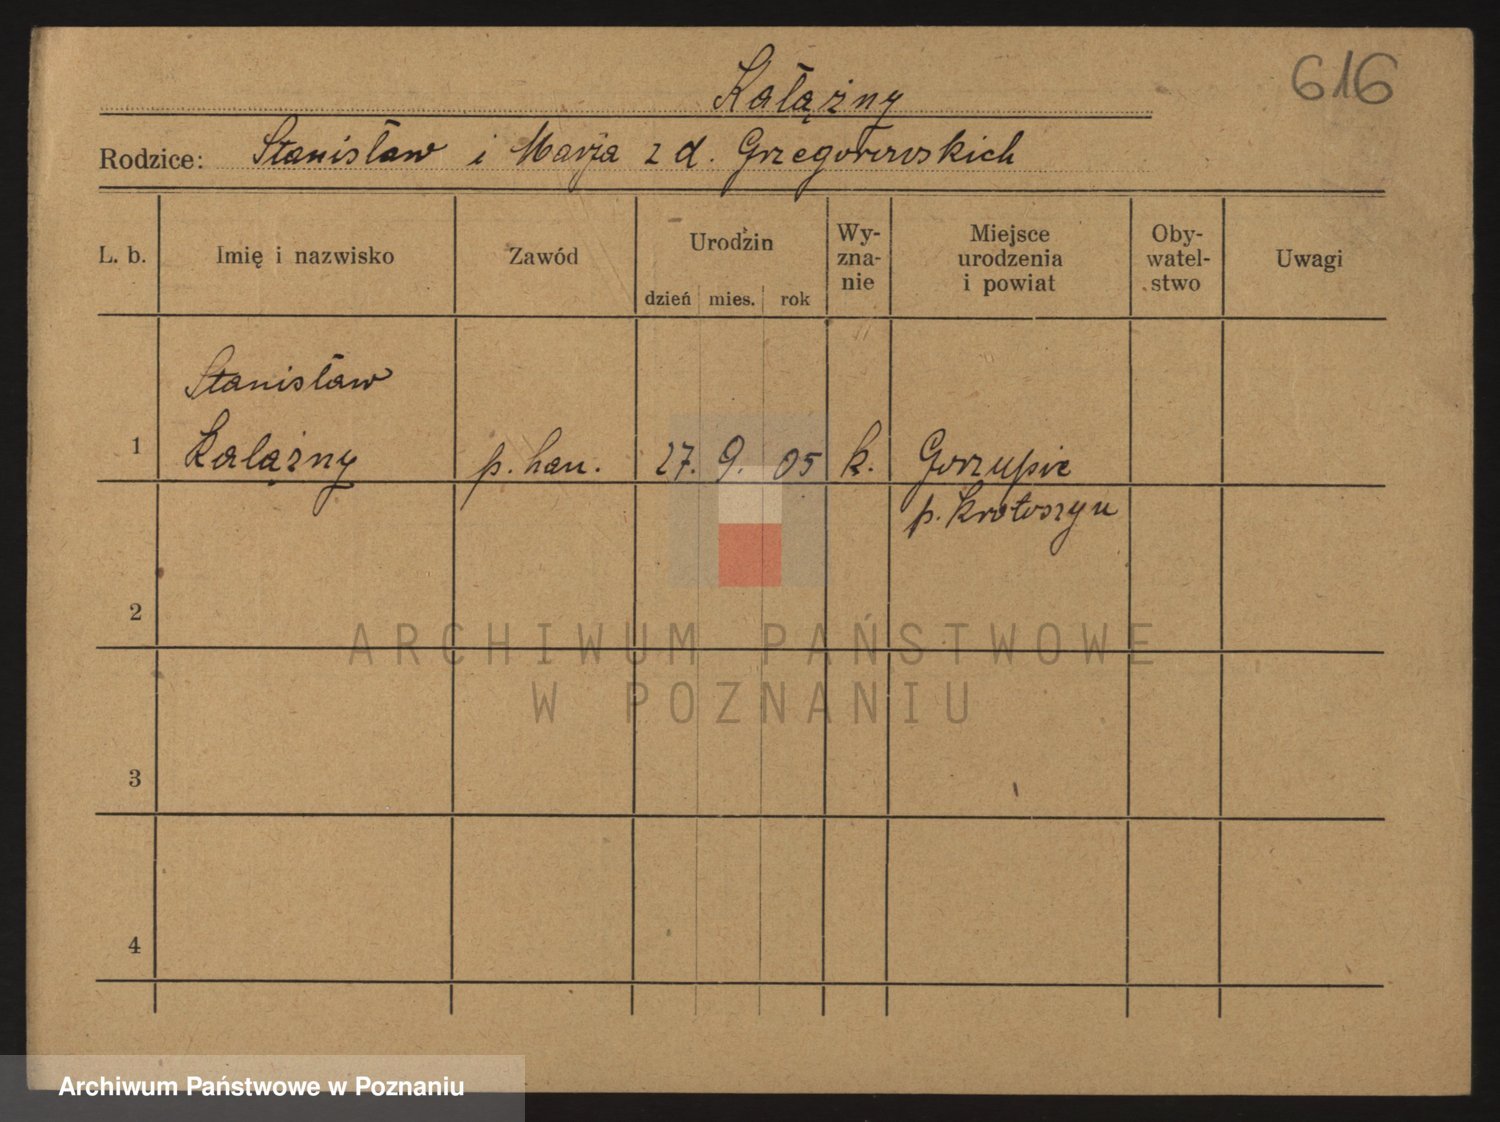 Kałążny
616
Rodzice: Stanisław i Marja z d. Grzegorowskich
L. b.
Imię i nazwisko
Zawód
Urodzin
dzień mies. rok
Wy-
zna-
nie
Miejsce
urodzenia
i powiat
Oby-
watel-
stwo
Uwagi
Stanisław
1 Kalążny p. han. 27. 9. 05 k. Gorzupie
p. Krotoszyn
2
ARCHIWUM PAŃSTWOWE
W POZNANIU
3
4
Archiwum Państwowe w Poznaniu